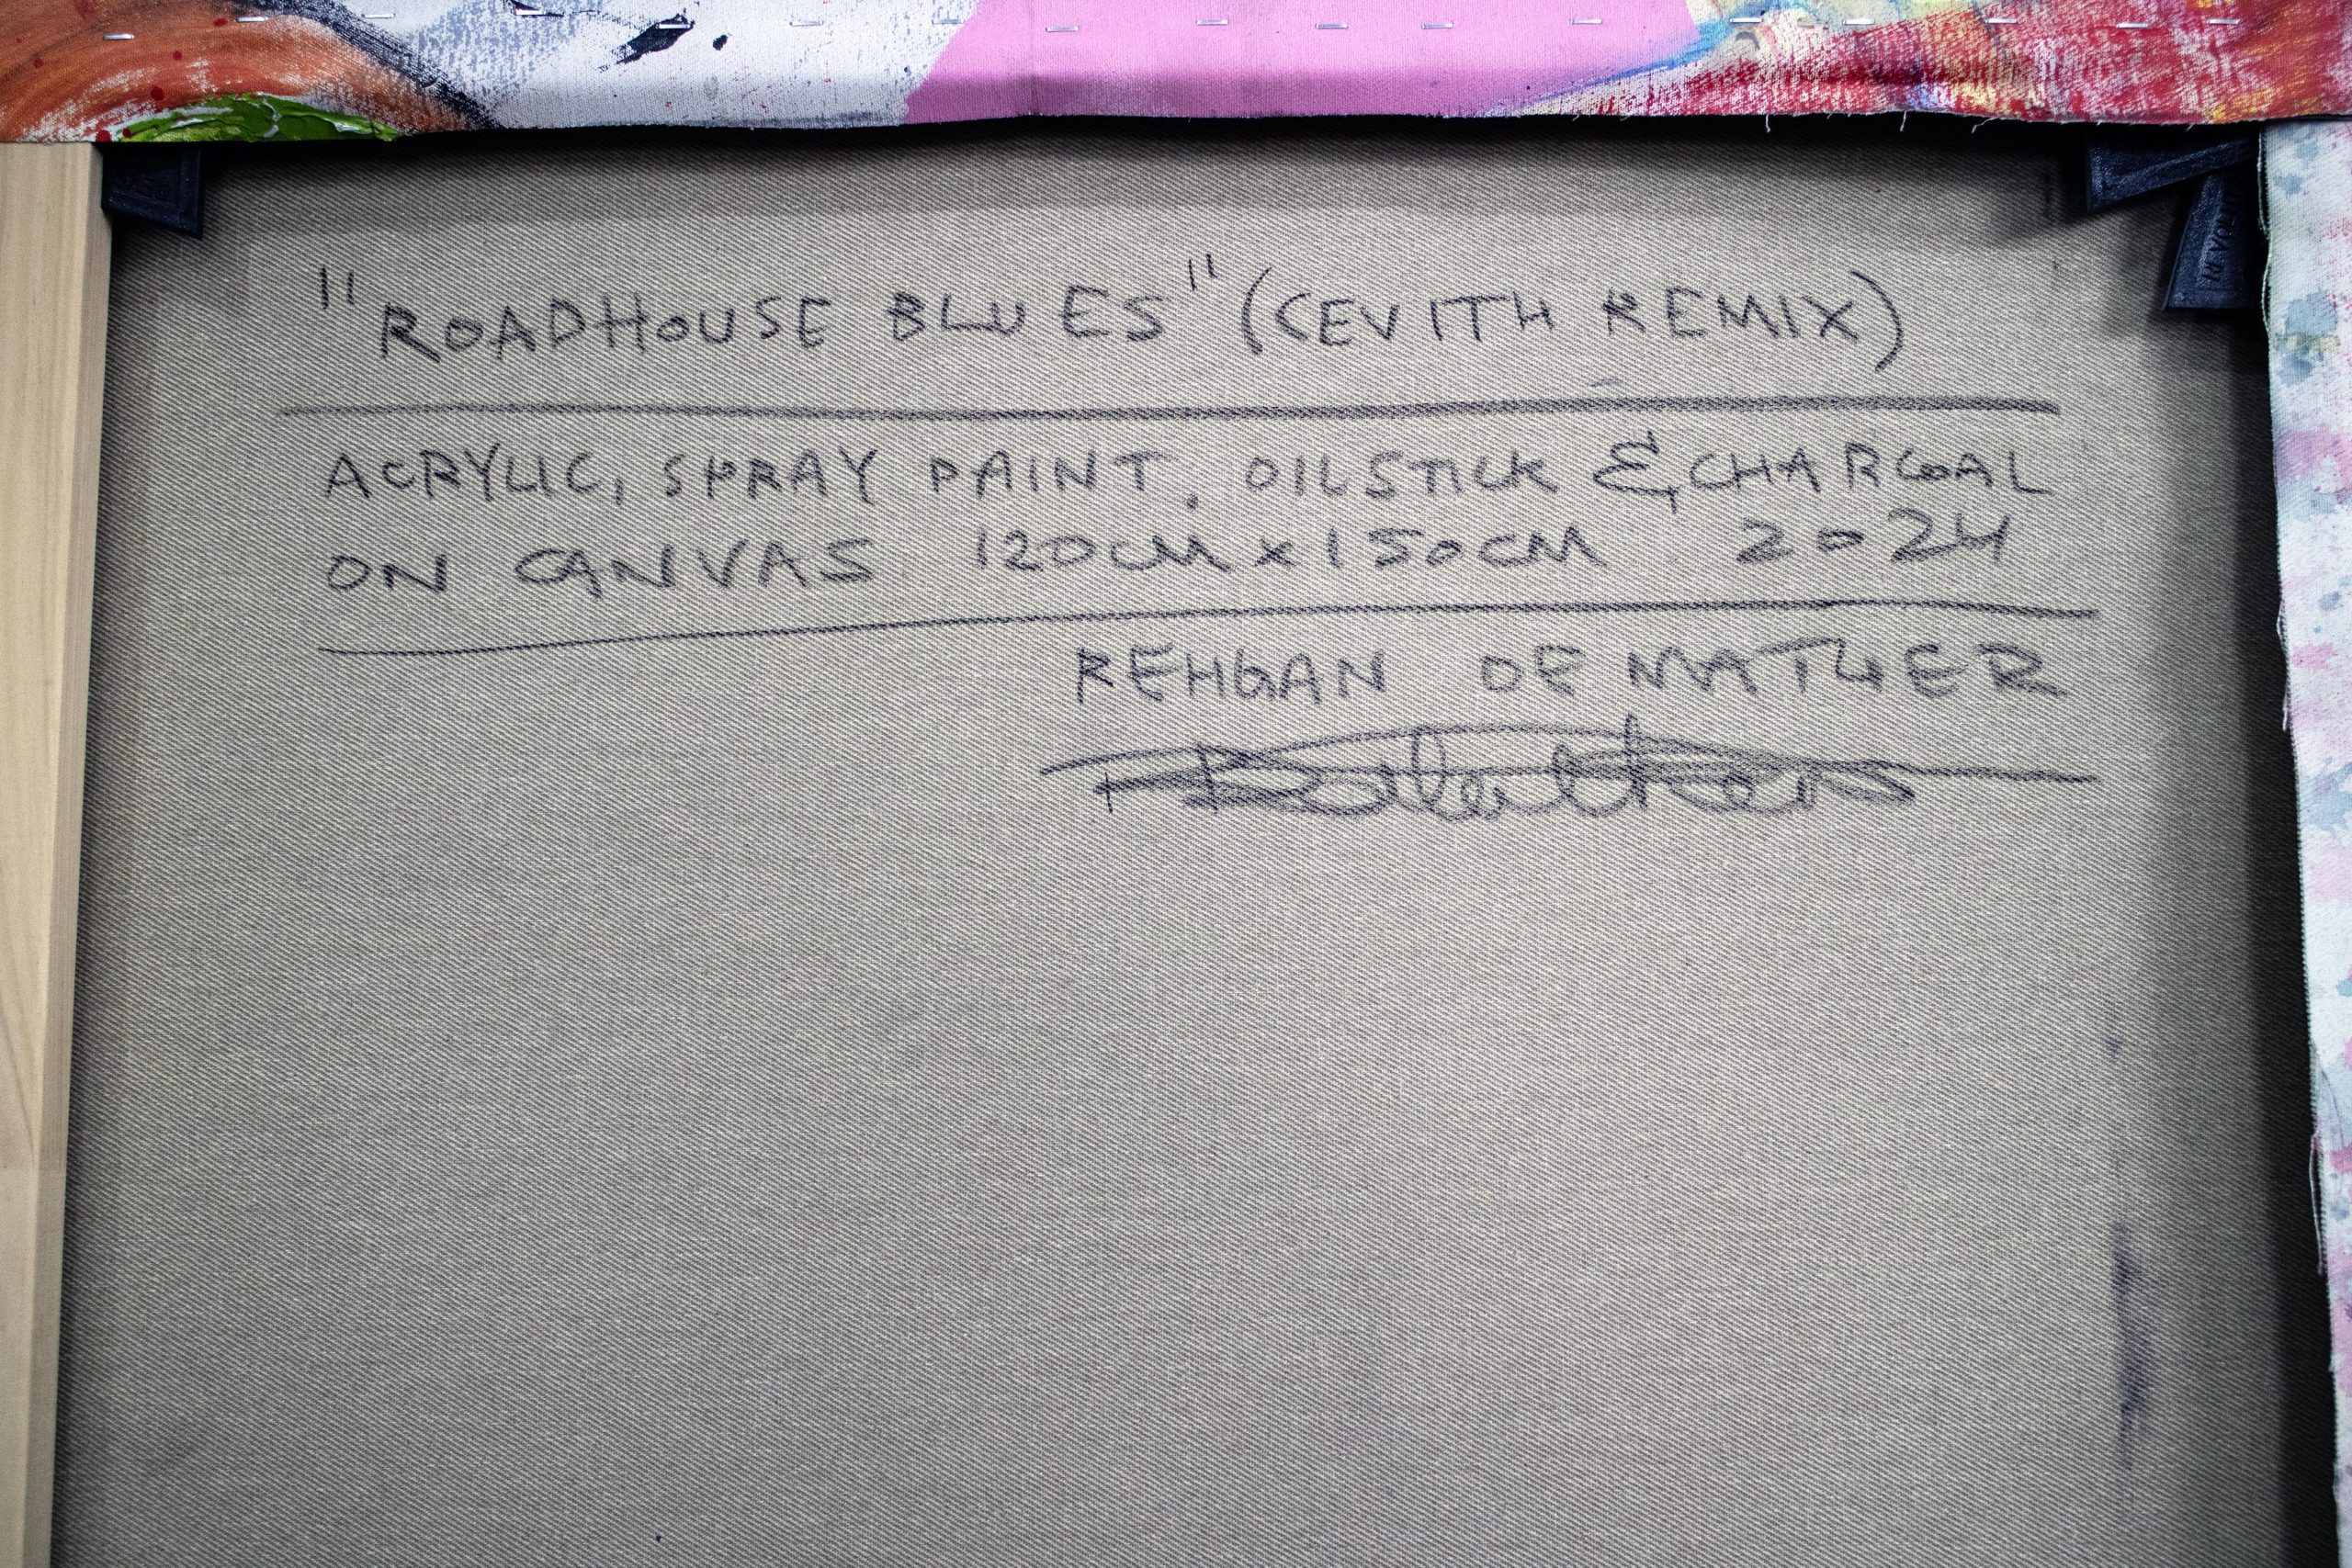 "ROADHOUSE BLUES" (CEVITH REMIX)
ACRYLIC, SPRAY PAINT, OILSTICK & CHARCOAL
ON CANVAS 120CM x 150CM 2024
REHGAN DE MATHER